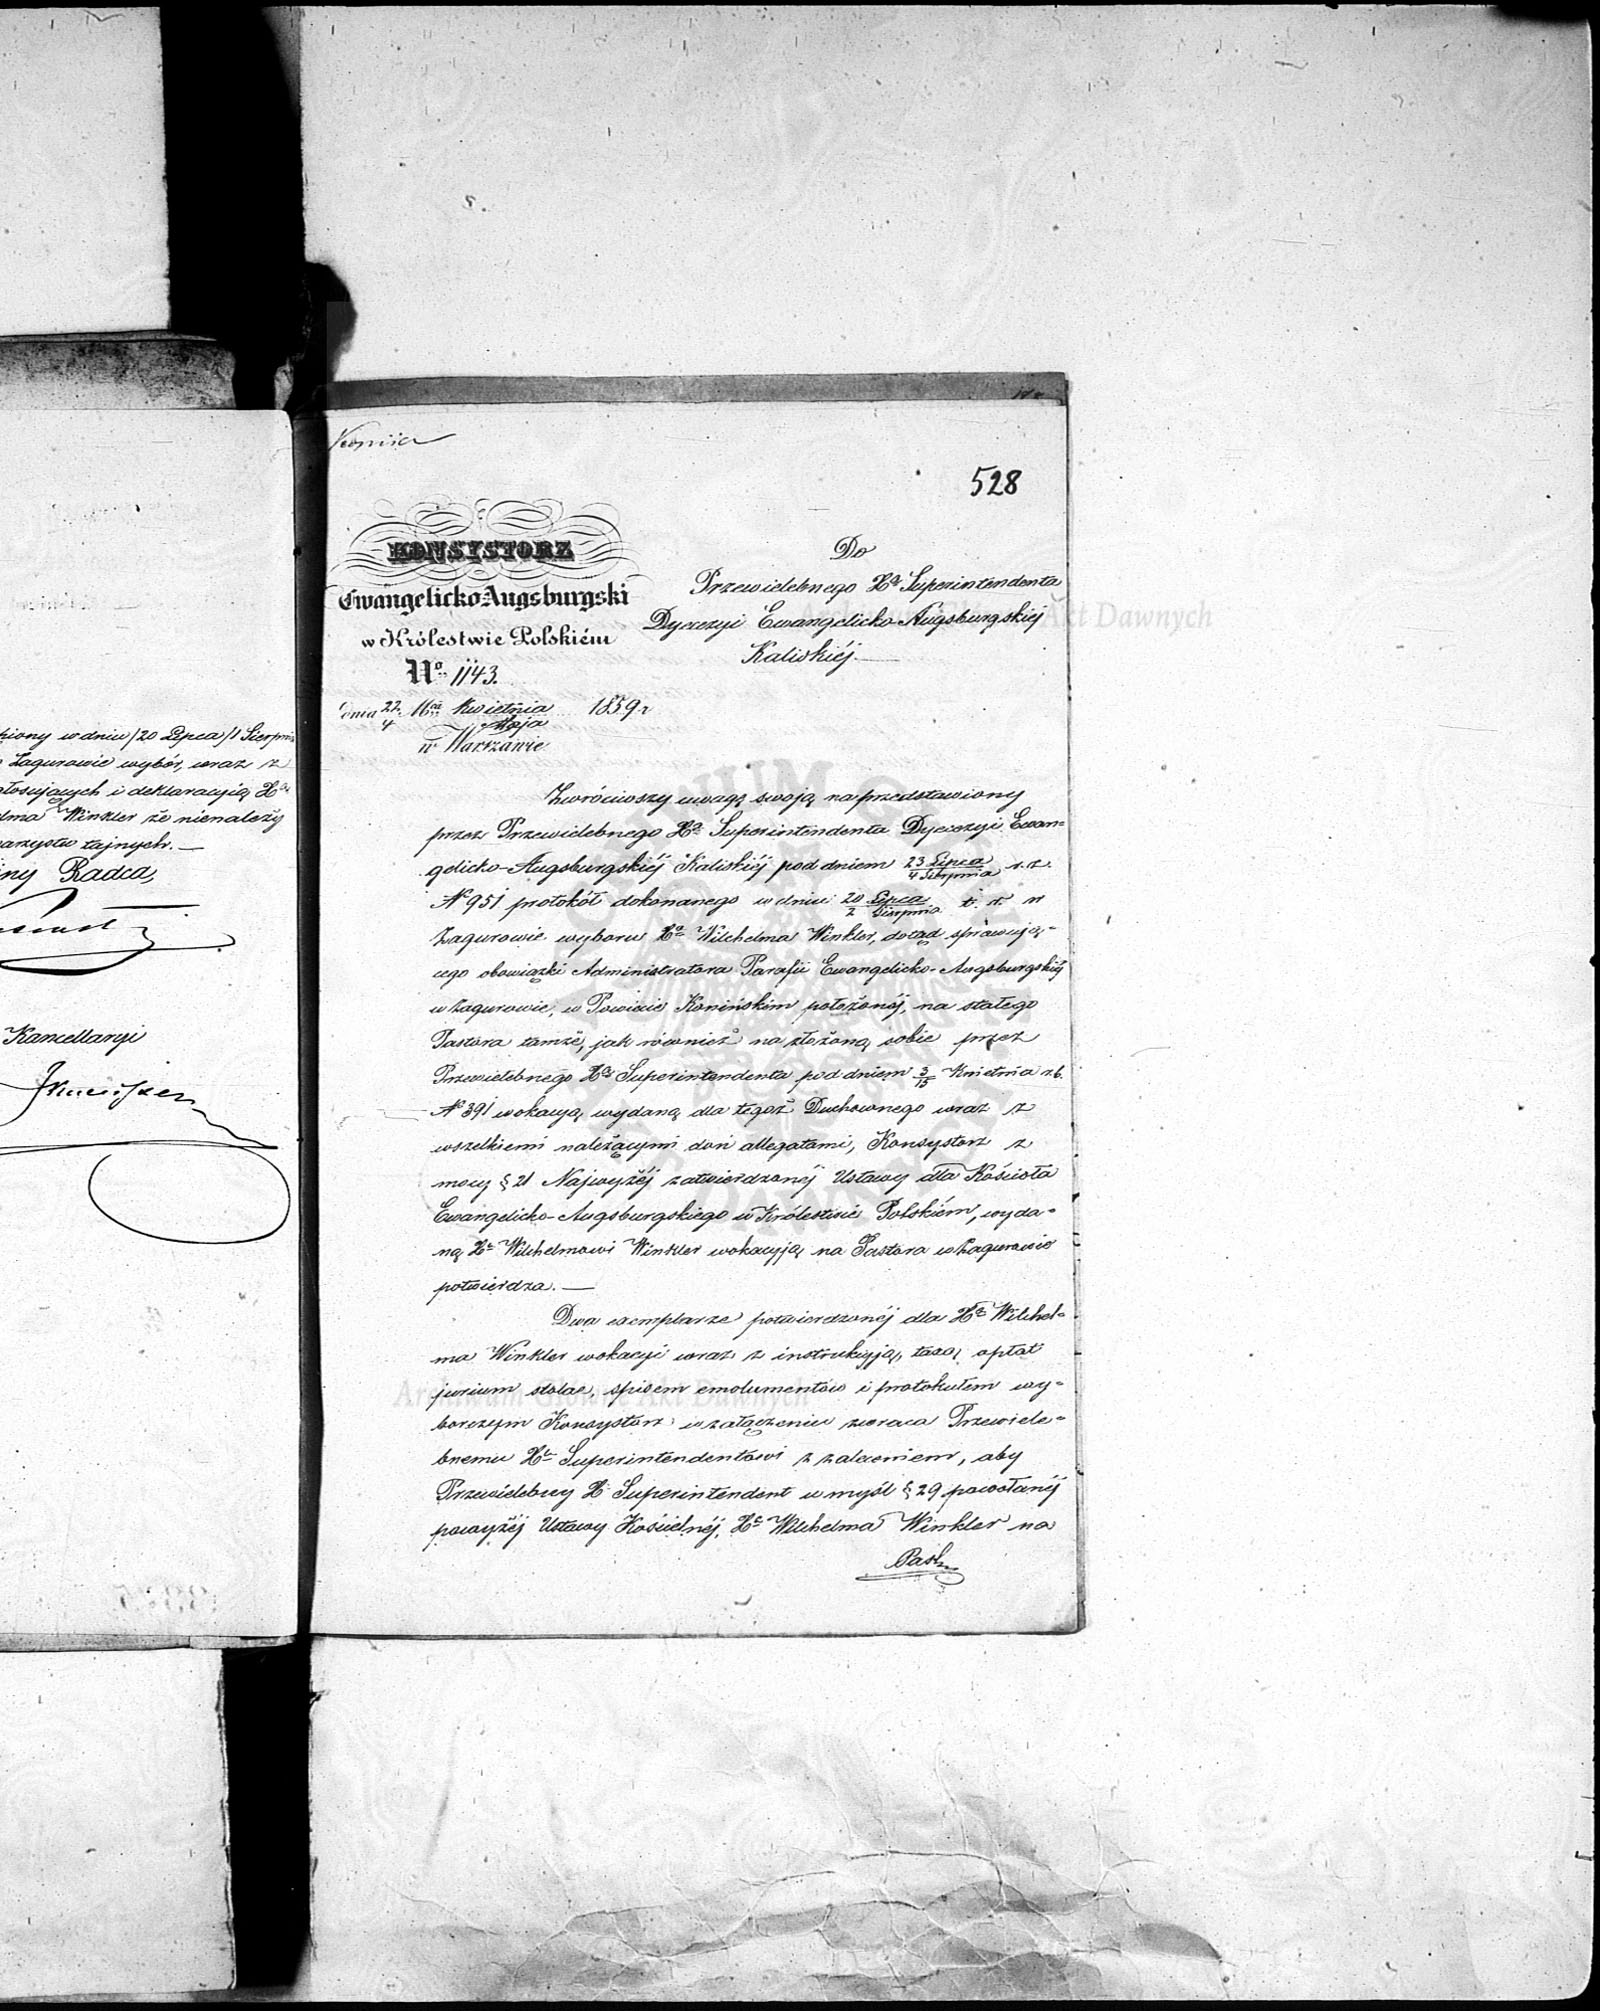 piony w dniu /20 Lipca/1 Sierpnia
Zagurowie wybór, wraz z
głosujących i deklaracyją Xa
elma Winkler że nienależy
warzystw tajnych. —
ny Radca,
Kancellaryi
Kopiia
528
KONSYSTORZ
Ewangelicko-Augsburgski
w Królestwie Polskiém
No. 1143.
dnia 22/4 16ca Kwietnia/Maja 1859 r
w Warszawie
Do
Przewielebnego Xa Superintendenta
Dyecezyi Ewangelicko-Augsburgskiéj
Kaliskiéj. —
Zwróciwszy uwagę swoją na przedstawiony
przez Przewielebnego Xa Superintendenta Dyecezyi Ewan=
gelicko-Augsburgskiéj Kaliskiéj pod dniem 23 Lipca/4 Sierpnia r. z.
N 951 protokół dokonanego w dniu 20 Lipca/2 Sierpnia t. r. w
Zagurowie wyboru Xa Wilchelma Winkler, dotąd sprawują=
cego obowiązki Administratora Parafii Ewangelicko-Augsburgskiéj
w Zagurowie, w Powiecie Konińskim położonéj, na stałego
Pastora tamże, jak również na złożoną sobie przez
Przewielebnego Xa Superintendenta pod dniem 3/15 Kwietnia r.b.
N 391 wokacyą wydaną dla tegoż Duchownego wraz z
wszelkiemi należącymi doń allegatami, Konsystorz z
mocy § 21 Najwyżéj zatwierdzonéj Ustawy dla Kościoła
Ewangelicko-Augsburgskiego w Królestwie Polskiém, wyda=
ną Xi Wilchelmowi Winkler wokacyją na Pastora w Zagurowie
potwierdza. —
Dwa exemplarze potwierdzonéj dla Xa Wilchel=
ma Winkler wokacyi wraz z instrukcyją, taxą opłat
jurium stolae, spisem emolumentów i protokułem wy=
borczym Konsystorz w załączeniu zwraca Przewiele=
bnemu Xi Superintendentowi z zaleceniem, aby
Przewielebny X Superintendent w myśl § 29 powołanéj
powyżéj Ustawy Kościelnéj, Xa Wilchelma Winkler na
Past
Archiwum Główne Akt Dawnych
Archiwum Główne Akt Dawnych